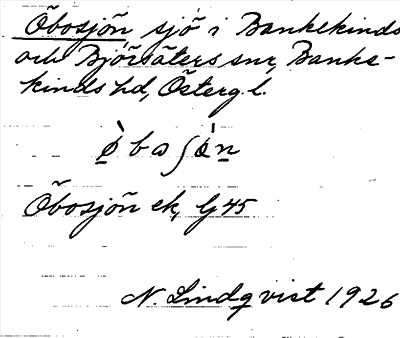 Öbosjön sjö i Bankekinds
och Björsäters snr, Banke-
kinds hd, Östergl.
ò̱ b ω ʃ ὼ n̠
Öbosjön ek, G 45
N. Lindqvist 1926